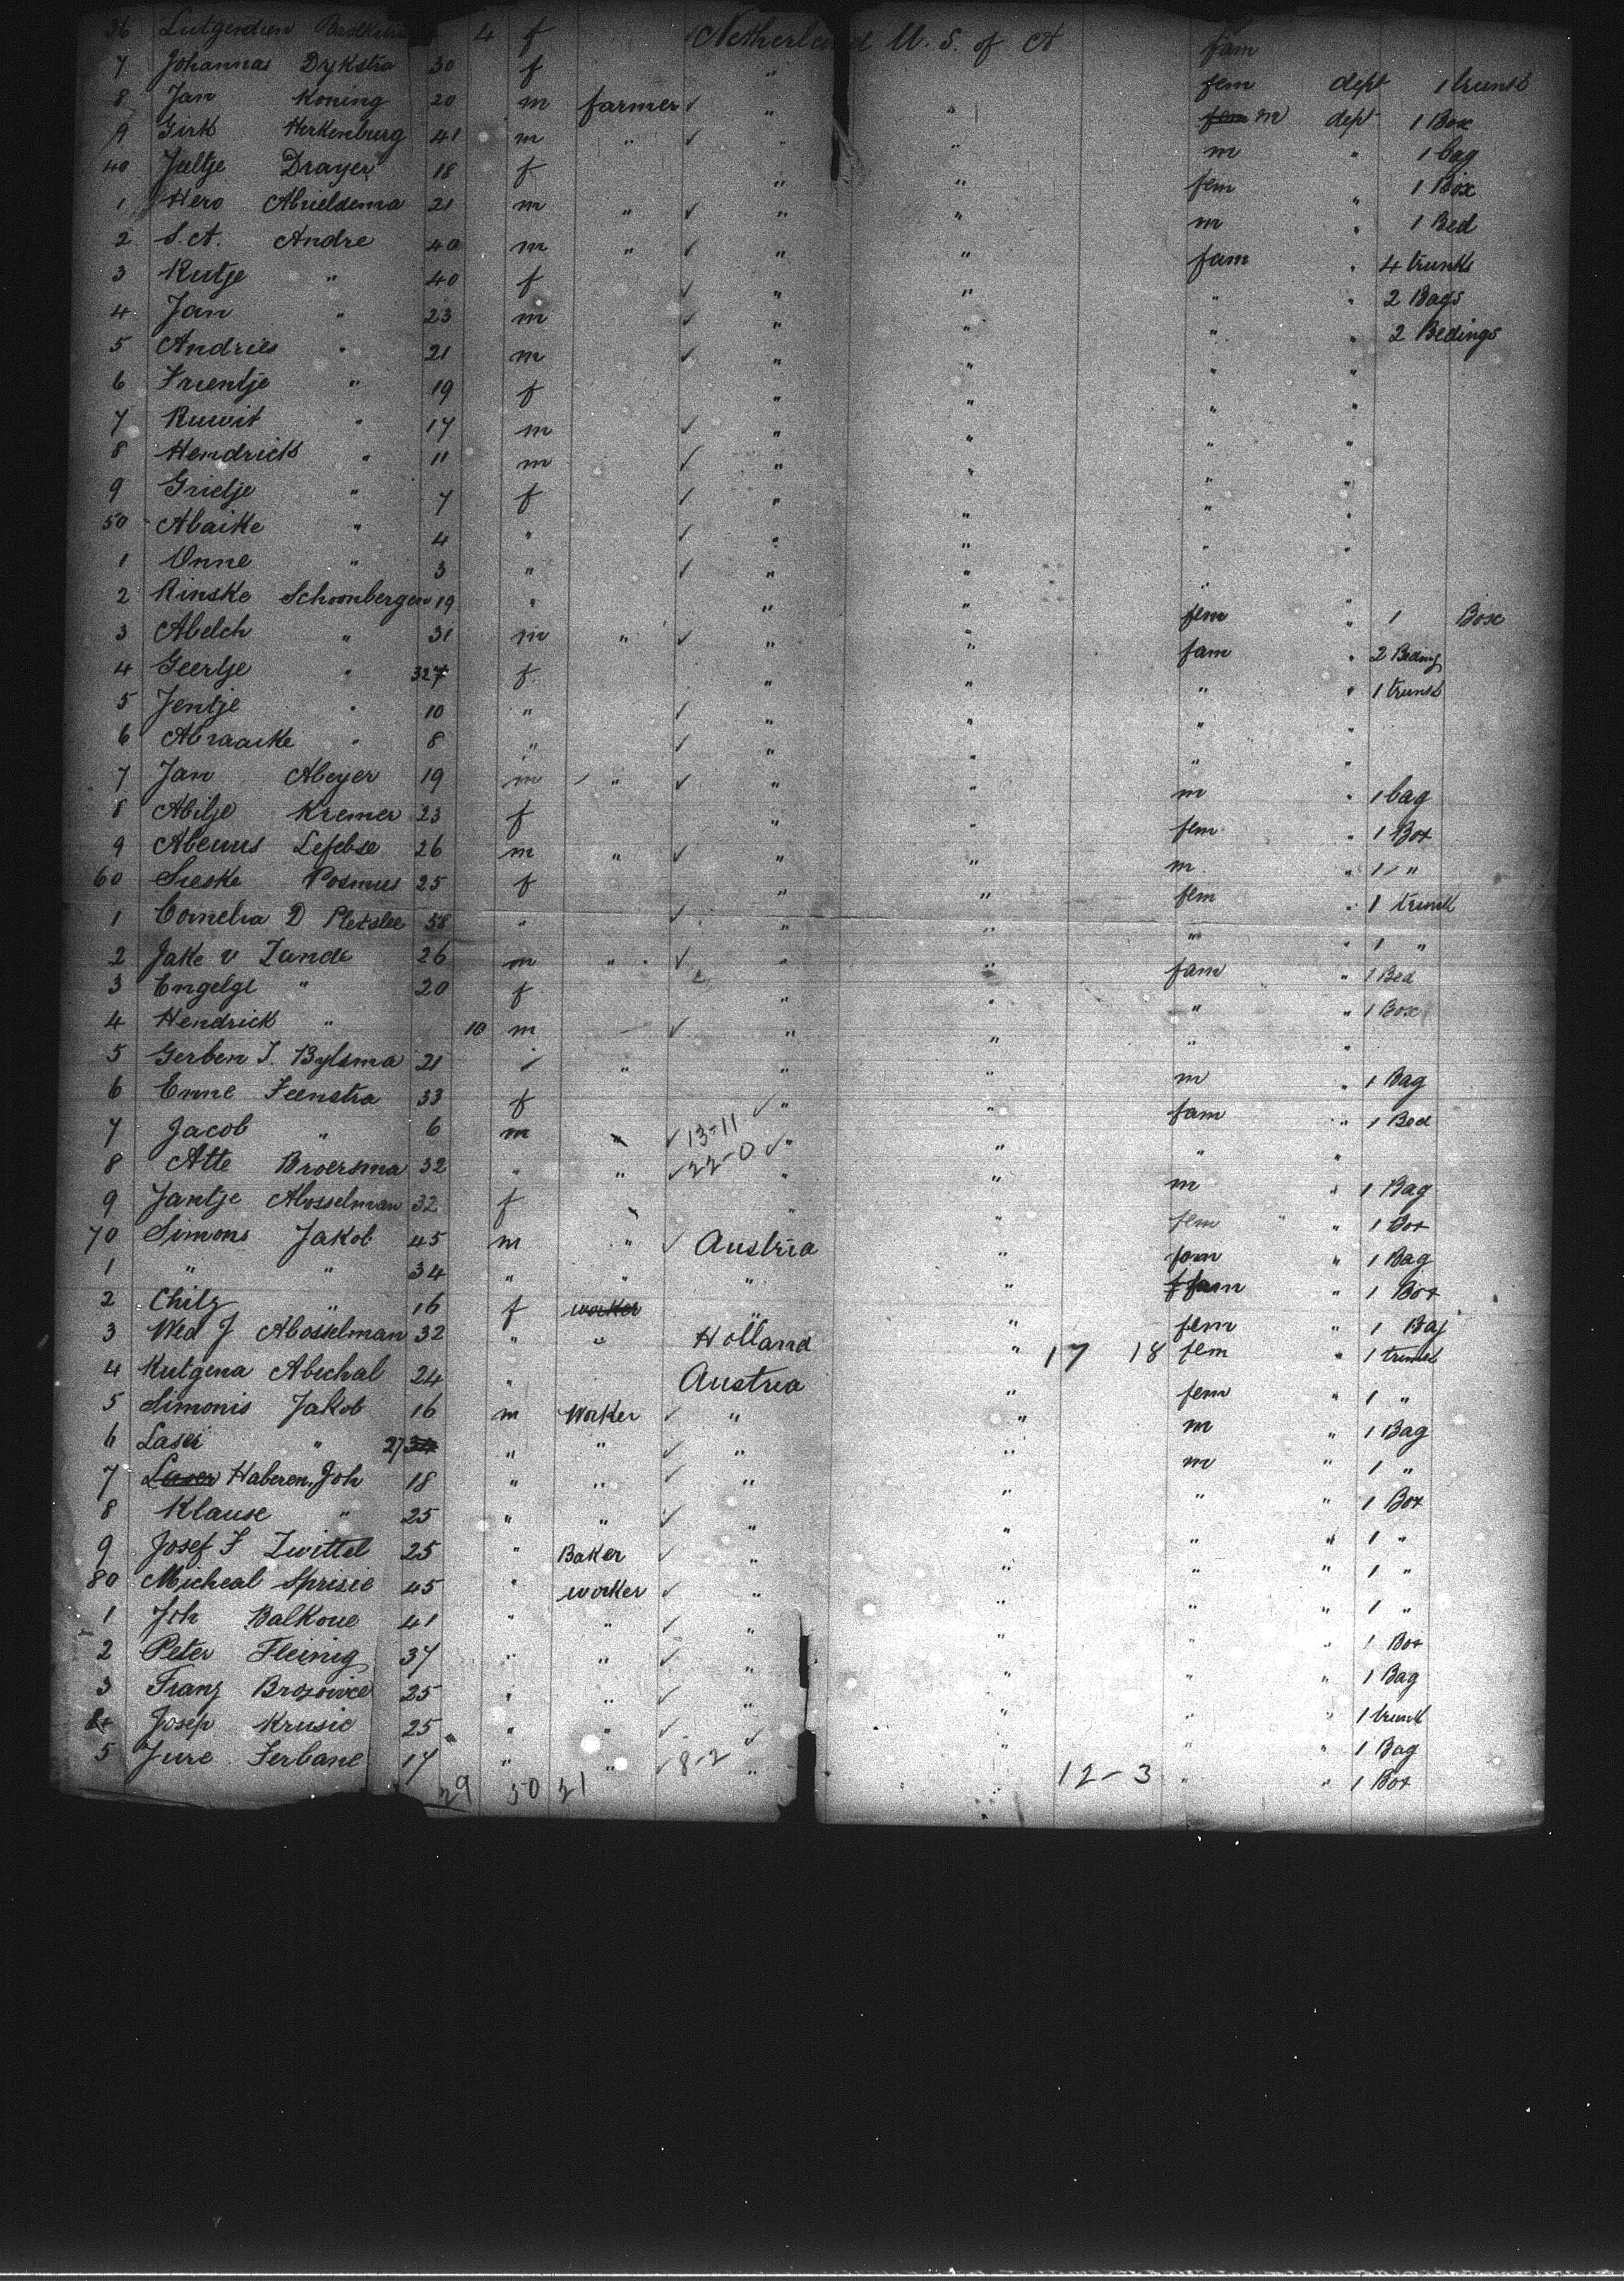 36 Lutgerdien 4 f Netherland U. S. of A fam
7 Johannas Dykstra 30 f " fem dept 1 trunk
8 Jan Koning 20 m farmer ✓ " " fem m dept 1 Box
9 Girk Herkenburg 41 m " ✓ " " m " 1 bag
40 Jeltje Drayer 18 f " " fem " 1 Box
1 Hero Abrieldema 21 m " ✓ " " m " 1 Bed
2 S. A. Andre 40 m " ✓ " " fam " 4 trunks
3 Rutje " 40 f ✓ " " " " 2 Bags
4 Jan " 23 m ✓ " " " " 2 Bedings
5 Andries " 21 m ✓ " " " "
6 Frientje " 19 f " " " "
7 Ruwit " 17 m ✓ " " " "
8 Hendrick " 11 m ✓ " " " "
9 Grietje " 7 f ✓ " " "
50 Abaike " 4 " ✓ " " " "
1 Onne " 3 " ✓ " " " "
2 Rinske Schoonbergen 19 " " " fem " 1 Box
3 Abelch " 31 m " ✓ " " fam " 2 Beding
4 Geertje " 327 f " " " " 1 trunk
5 Jentje " 10 " ✓ " " " "
6 Abraacke " 8 " ✓ " " " "
7 Jan Abeyer 19 m " ✓ " " m " 1 bag
8 Abilje Kremer 23 f " " fem " 1 Box
9 Abeuus Lefebse 26 m " ✓ " " m " 1 "
60 Sieske Posmus 25 f " " fem " 1 trunk
1 Cornelia D Pletslee 58 " ✓ " " " " 1 "
2 Jake v Zande 26 m " ✓ " " fam " 1 Bed
3 Engelge " 20 f " " " " 1 Box
4 Hendrick " 10 m ✓ " " " "
5 Gerben J. Bylsma 21 " " " m " 1 Bag
6 Enne Feenstra 33 f ✓ " " fam " 1 Bed
7 Jacob " 6 m " ✓ 13-11 " " " "
8 Atte Broersma 32 " " ✓ 22-0 ✓ " " m " 1 Bag
9 Jantje Abosselman 32 f " " " fem " 1 Box
70 Simons Jakob 45 m " ✓ Austria " fam " 1 Bag
1 " " 34 " " " " fam " 1 Box
2 Chilz " 16 f worker " " fem " 1 Bag
3 Wed J Abosselman 32 " " Holland " 17 18 fem " 1 trunk
4 Kutgena Abichal 24 " Austria " fem " 1 "
5 Simonis Jakob 16 m Worker ✓ " " m " 1 Bag
6 Laser " 27 34 " " ✓ " " m " 1 "
7 Laser Haberen, Joh 18 " " ✓ " " " " 1 Box
8 Klause " 25 " " ✓ " " " " 1 "
9 Josef F Zwittel 25 " Baker ✓ " " " " 1 "
80 Micheal Sprisic 45 " worker ✓ " " " " 1 "
1 Joh Balkoue 41 " " ✓ " " " " 1 Box
2 Peter Fleinig 37 " " ✓ " " " " 1 Bag
3 Franz Brozowice 25 " " ✓ " " " " 1 trunk
84 Josep Krusic 25 " " ✓ " " " " 1 Bag
5 Jure Ferbane 17 " " ✓ 8-2 " " 12-3 " " 1 Box
29 50 21